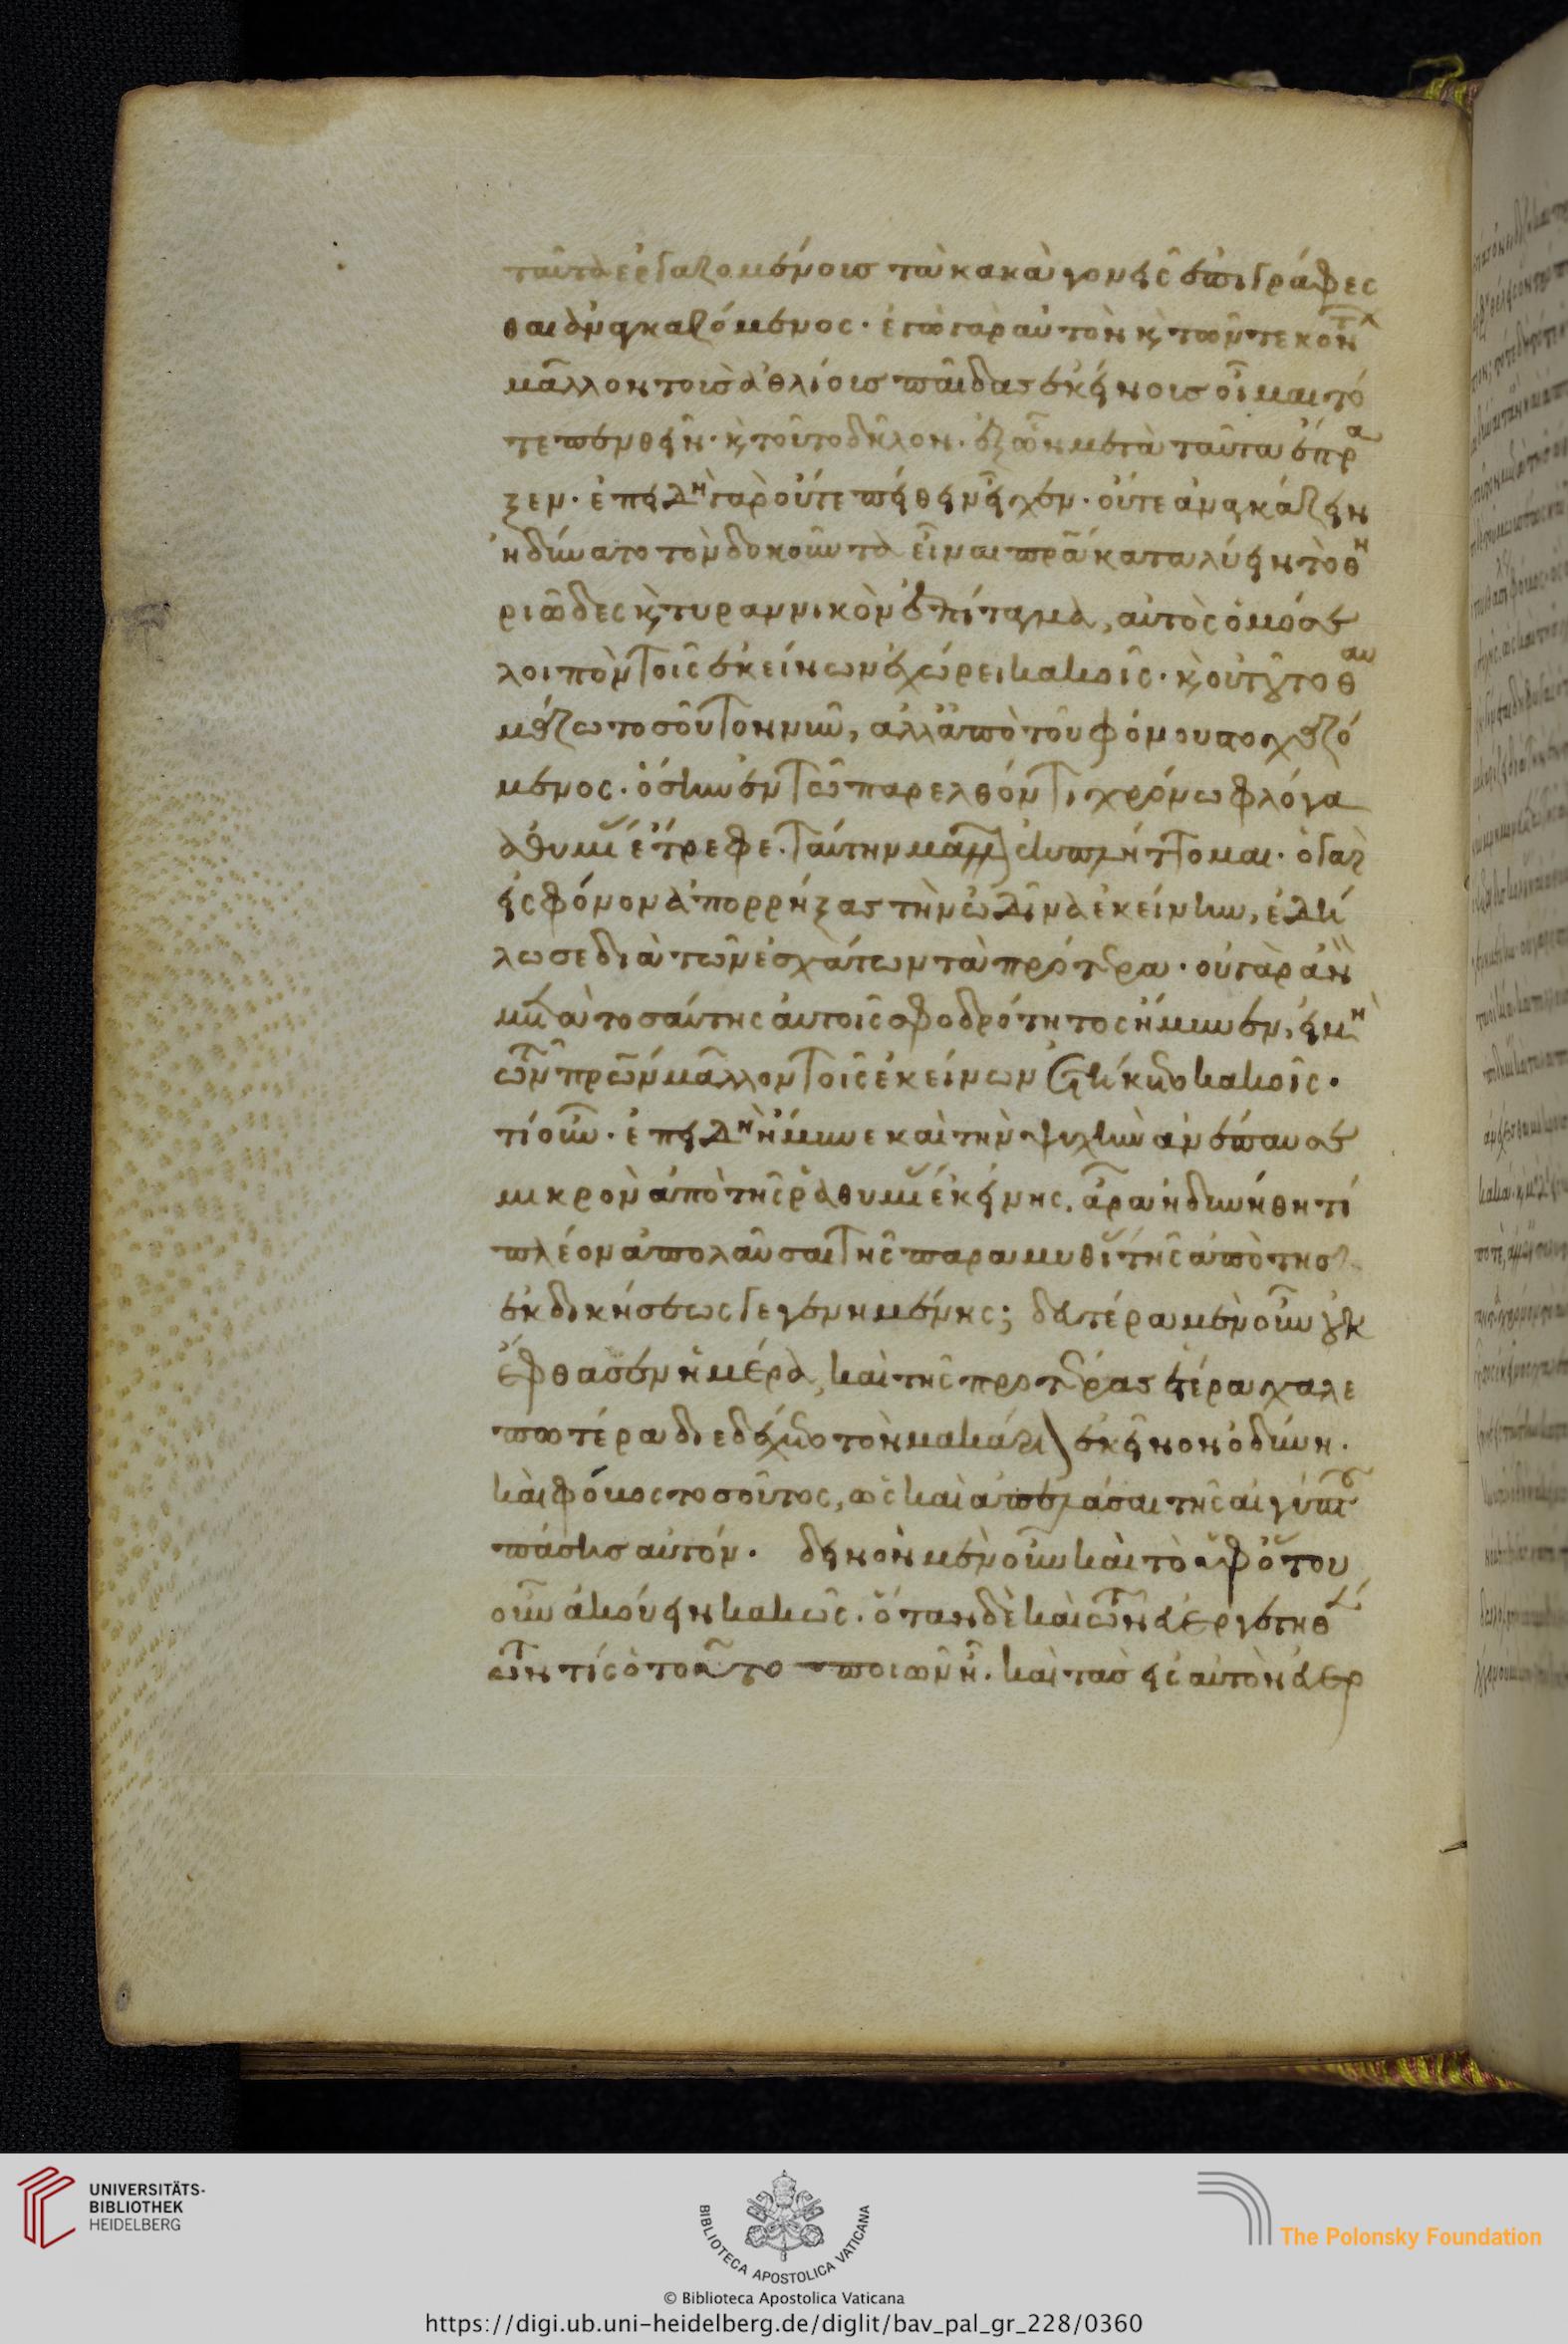 ταῦτα ἐργαζομένοις τὰ κακὰ γονεῖς ἐπιγράφεσ
θαι ἀναγκαζόμενος. ἐγὼ γὰρ αὐτὸν κ τῶν τεκόντ
μᾶλλον τοῖς ἀθλίοις παῖδας ἐκείνοις οἶμαι τό
τε πενθεῖν. κ τοῦτο δῆλον. ἐξ ὧν μετὰ ταῦτα ἔπρα
ξεν. ἐπειδὴ γὰρ οὔτε πείθειν εἶχεν. οὔτε ἀναγκάζειν
ἠδύνατο τὸν δοκοῦντα εἶναι πρα καταλύειν τὸ θη
ριῶδες κ τυραννικὸν ἐπίταγμα, αὐτὸς ὁμόσε
λοιπὸν τοῖς ἐκείνων ἐχώρει κακοῖς. κ οὔπω τοῦτο θαυ
μάζω τοσοῦτον νῦν, ἀλλ' ἀπὸ τοῦ φόνου στοχαζό
μενος. ὅσην ἐν τῷ παρελθόντι χρόνω φλόγα
ἀθυμίας ἔτρεφε. ταύτην μᾶλλον ἐκπλήττομαι. ὁ γὰρ
εἰς φόνον ἀπορρήξας τὴν ὠδῖνα ἐκείνην, ἐδή
λωσε διὰ τῶν ἐσχάτων τὰ πρότερα. οὐ γὰρ ἂν
μετὰ τοσαύτης αὐτοῖς σφοδρότητος ἤμυνεν, εἰ μὴ
τῶν πρων μᾶλλον τοῖς ἐκείνων ἐδήκετο κακοῖς.
τί οὖν. ἐπειδὴ ἤμυνε καὶ τὴν ψυχὴν ἀνέπαυσε
μικρὸν ἀπὸ τῆς ῥαθυμίας ἐκείνης. ἆρα ἠδυνήθη τί
πλέον ἀπολαῦσαι τῆς παραμυθίας τῆς ἀπὸ τῆς
ἐκδικήσεως γεγενημένης; δευτέρα μὲν οὖν οὐκ
ἔφθασεν ἡμέρα, καὶ τῆς προτέρας ἑτέρα χαλε
πωτέρα διεδέχετο τὸν μακάριον ἐκεῖνον ὀδύνη.
καὶ φόβος τοσοῦτος, ὡς καὶ ἀπελάσαι τῆς αἰγύπτου
πάσης αὐτόν. δεινὸν μὲν οὖν καὶ τὸ ἀφ' ὅτου
οὖν ἀκούειν κακῶς. ὅταν δὲ καὶ τῶν εὐεργετηθέν
των τίς ὁ τοῦτο ποιῶν ἦ. καὶ τὰς εἰς αὐτὸν εὐερ
UNIVERSITÄTS-
BIBLIOTHEK
HEIDELBERG
BIBLIOTECA APOSTOLICA VATICANA
The Polonsky Foundation
© Biblioteca Apostolica Vaticana
https://digi.ub.uni-heidelberg.de/diglit/bav_pal_gr_228/0360